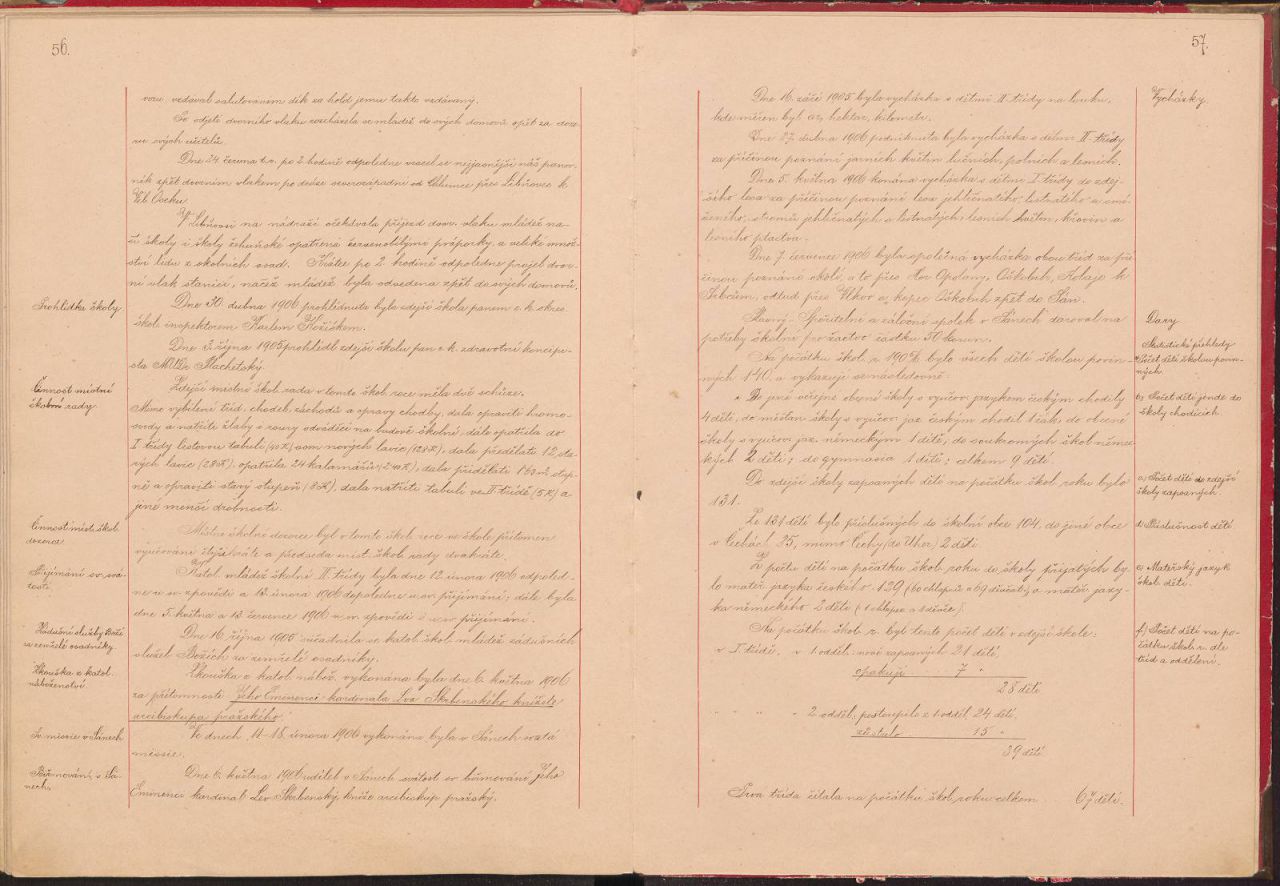 56.
vozu vzdával salutováním dík za hold jemu takto vzdávaný.
Po odjetí dvorního vlaku rozcházela se mládež do svých domovů opět za dozo-
ru svých učitelů.
Dne 24. června t. r. po 2. hodině odpoledne vracel se nejjasnější náš panov-
ník zpět dvorním vlakem po dráze severozápadní od Chlumce přes Libňoves k
Vel. Oseku.
V Libňovsi na nádraží očekávala příjezd dvor. vlaku mládež na-
ší školy i školy žehuňské opatřena červenobílými práporky a veliké množ-
ství lidu z okolních osad. Krátce po 2. hodině odpoledne projel dvor-
ní vlak stanicí, načež mládež byla odvedena zpět do svých domovů.
Prohlídka školy.
Dne 30. dubna 1906 prohlédnuta byla zdejší škola panem c. k. okres.
škol. inspektorem Karlem Kožíškem.
Dne 3. října 1905 prohlédl zdejší školu pan c. k. zdravotní koncipi-
sta MUDr. Plachetský.
Činnost místní
školní rady.
Zdejší místní škol. rada v tomto škol. roce měla dvě schůze.
Mimo vybílení tříd, chodeb, záchodů a opravy chodby, dala opraviti hromo-
svody a natříti žlaby s roury odváděcí na budově školní, dále opatřila do
I. třídy čestnou tabuli (40 K), osm nových lavic (128 K), dala předělati 12 sta-
rých lavic (28 K), opatřila 24 kalamářů (2·40 K), dala přidělati 1·63 m² stup-
ně a opraviti starý stupeň (8 K), dala natříti tabuli ve II. třídě (5 K) a
jiné menší drobnosti.
Činnost míst. škol.
dozorce.
Místní školní dozorce byl v tomto škol. roce ve škole přítomen
vyučování čtyřikráte a předseda míst. škol. rady dvakráte.
Přijímání sv. svá-
tostí.
Katol. mládež školní II. třídy byla dne 12. února 1906 odpoled-
ne u sv. zpovědi a 13. února 1906 dopoledne u sv. přijímání; dále byla
dne 5. května a 13. července 1906 u sv. zpovědi a u sv. přijímání.
Zádušní služby Boží
za zemřelé osadníky.
Dne 16. října 1905 súčastnila se katol. škol. mládež zádušních
služeb Božích za zemřelé osadníky.
Zkouška z katol.
náboženství.
Zkouška z katol. nábož. vykonána byla dne 6. května 1906
za přítomnosti Jeho Eminencí kardinala Lva Skrbenského knížete
arcibiskupa pražského.
Sv. missie v Sánech
Ve dnech 11.–18. února 1906 vykonána byla v Sánech svatá
missie.
Biřmování v Sá-
nech.
Dne 6. května 1906 udílel v Sánech svátost sv. biřmování Jeho
Eminencí kardinal Lev Skrbenský kníže arcibiskup pražský.
57.
Vycházky.
Dne 16. září 1905 byla vycházka s dětmi II. třídy na louku,
kde měřen byl ar, hektar, kilometr.
Dne 27. dubna 1906 podniknuta byla vycházka s dětmi II. třídy
za příčinou poznání jarních květin lučních, polních a lesních.
Dne 5. května 1906 konána vycházka s dětmi I. třídy do zdej-
šího lesa za příčinou poznání lesa jehličnatého, listnatého a smí-
šeného, stromů jehličnatých a listnatých, lesních květin, křovin a
lesního ptactva.
Dne 7. července 1906 byla společná vycházka obou tříd za pří-
činou poznání okolí, a to přes Opolany, Oškobrh, k
Libčem, odtud přes Vlkov a kopec Oškobrh zpět do Sán.
Dary.
Slavný „Spořitelní a záloční spolek v Sánech“ daroval na
potřeby školní pro žactvo částku 50 korun.
Statistické přehledy
a) Počet dětí školou povin-
ných.
Na počátku škol. r. 1905/6 bylo všech dětí školou povin-
ných 140 a vykazují se následovně:
b) Počet dětí jinde do
školy chodících.
Do jiné veřejné obecné školy s vyučov. jazykem českým chodily
4 děti, do měšťan. školy s vyučov. jaz. českým chodil 1 žák, do obecné
školy s vyučov. jaz. německým 1 dítě; do soukromých škol němec-
kých 2 děti; do gymnasia 1 dítě; celkem 9 dětí.
c) Počet dětí do zdejší
školy zapsaných.
Do zdejší školy zapsaných dětí na počátku škol. roku bylo
131.
d) Příslušnost dětí.
Ze 131 dětí bylo příslušných do školní obce 104, do jiné obce
v Čechách 25, mimo Čechy (do Uher) 2 děti.
e) Mateřský jazyk
škol. dětí.
Z počtu dětí na počátku škol. roku do školy přijatých by-
lo mateř. jazyka českého 129 (60 chlapců a 69 děvčat); a mateř. jazy-
ka německého 2 děti (1 chlapec a 1 děvče).
f) Počet dětí na po-
čátku škol. r. dle
tříd a oddělení.
Na počátku škol. r. byl tento počet dětí v zdejší škole:
v I. třídě, v 1. odděl. nově zapsaných 21 dětí
opakují 7 "
28 dětí
" " " 2. odděl. postoupilo z 1. odděl. 24 dětí,
zůstalo 15 "
39 dětí
Prvá třída čítala na počátku škol. roku celkem 67 dětí.